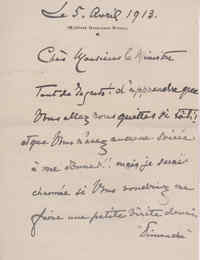 Le 5. Avril 1913.
Cher Monsieur le Ministre
Tout de regret! d'apprendre que
Vous allez nous quitter si tôt!,
et que Vous n'avez aucune soirée
à me donner!! mais je serai
charmée si Vous voudriez me
faire une petite visite demain
"Dimanche"